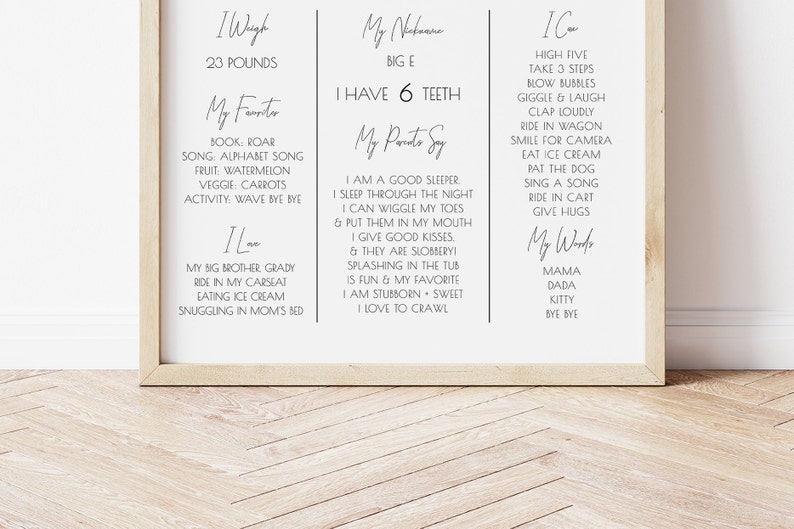 I Weigh
23 POUNDS
My Favorites
BOOK: ROAR
SONG: ALPHABET SONG
FRUIT: WATERMELON
VEGGIE: CARROTS
ACTIVITY: WAVE BYE BYE
I Love
MY BIG BROTHER, GRADY
RIDE IN MY CARSEAT
EATING ICE CREAM
SNUGGLING IN MOM'S BED
My Nickname
BIG E
I HAVE 6 TEETH
My Parents Say
I AM A GOOD SLEEPER.
I SLEEP THROUGH THE NIGHT
I CAN WIGGLE MY TOES
& PUT THEM IN MY MOUTH
I GIVE GOOD KISSES,
& THEY ARE SLOBBERY!
SPLASHING IN THE TUB
IS FUN & MY FAVORITE
I AM STUBBORN + SWEET
I LOVE TO CRAWL
I Can
HIGH FIVE
TAKE 3 STEPS
BLOW BUBBLES
GIGGLE & LAUGH
CLAP LOUDLY
RIDE IN WAGON
SMILE FOR CAMERA
EAT ICE CREAM
PAT THE DOG
SING A SONG
RIDE IN CART
GIVE HUGS
My Words
MAMA
DADA
KITTY
BYE BYE